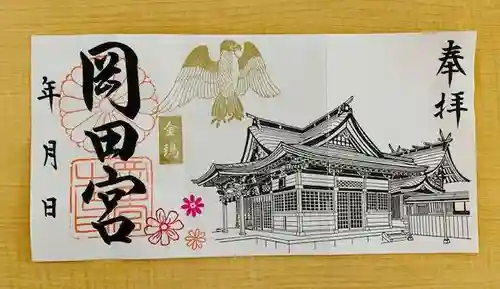 奉拝
岡田宮
金鵄
年月日